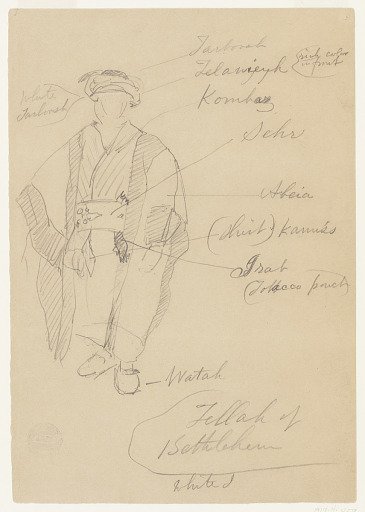 Tarbosh
Telawiyeh
rich color
in front
White
Tarbosh
Kombaz
Sehr
Abeia
(Shirt) Kamiss
Irab
(Tobacco pouch)
Watah
Fellah of
Bethlehem